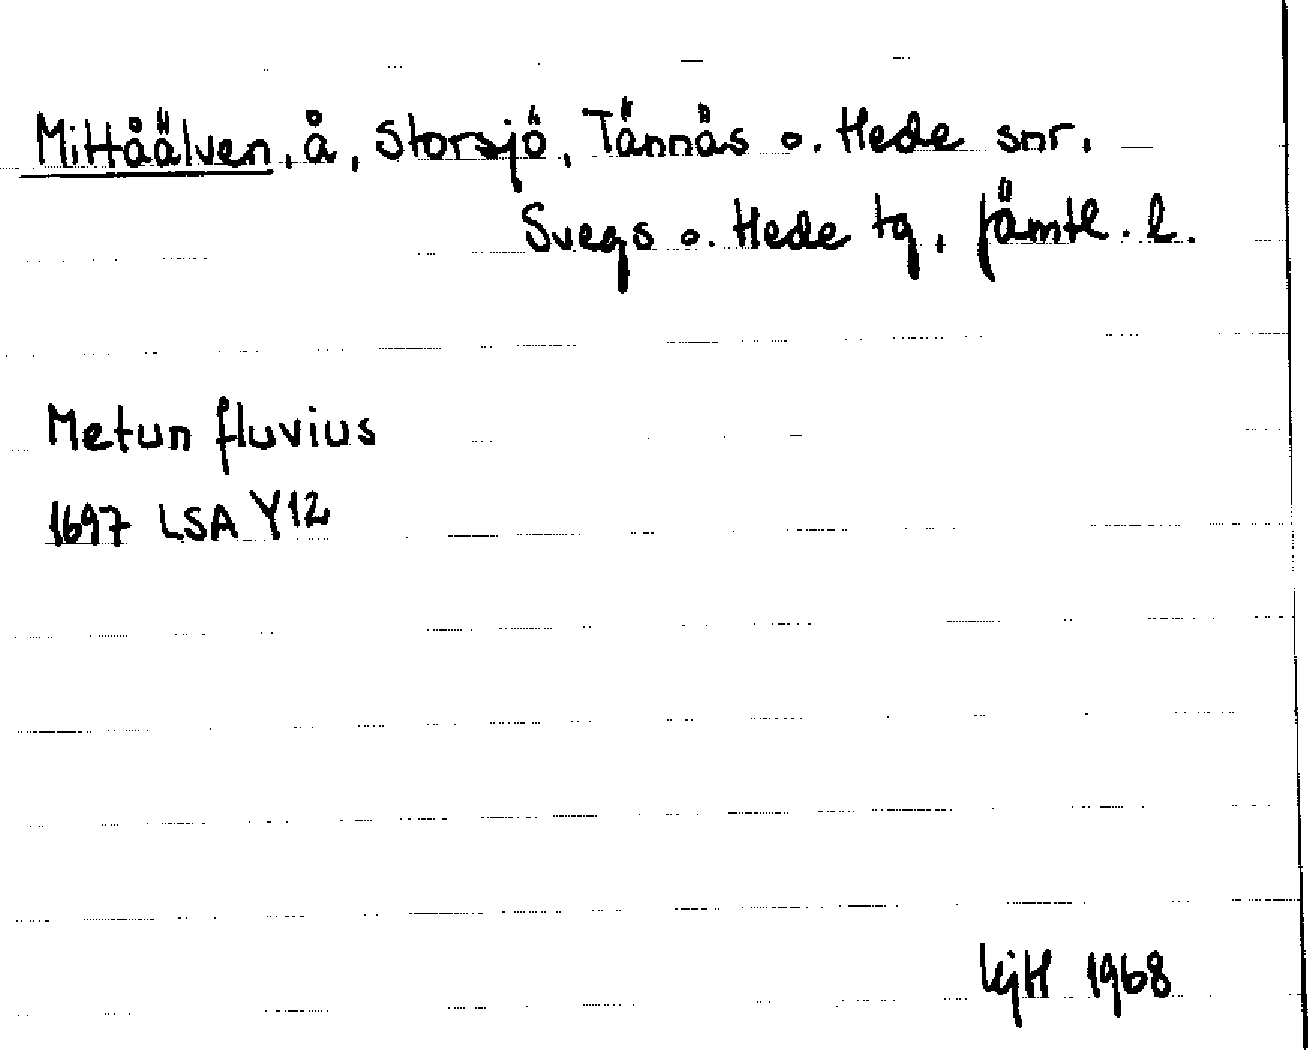 Mittåälven, å, Storsjö, Tännäs o. Hede snr,
Svegs o. Hede tg, Jämtl. l.
Metun fluvius
1697 LSA Y12
1968